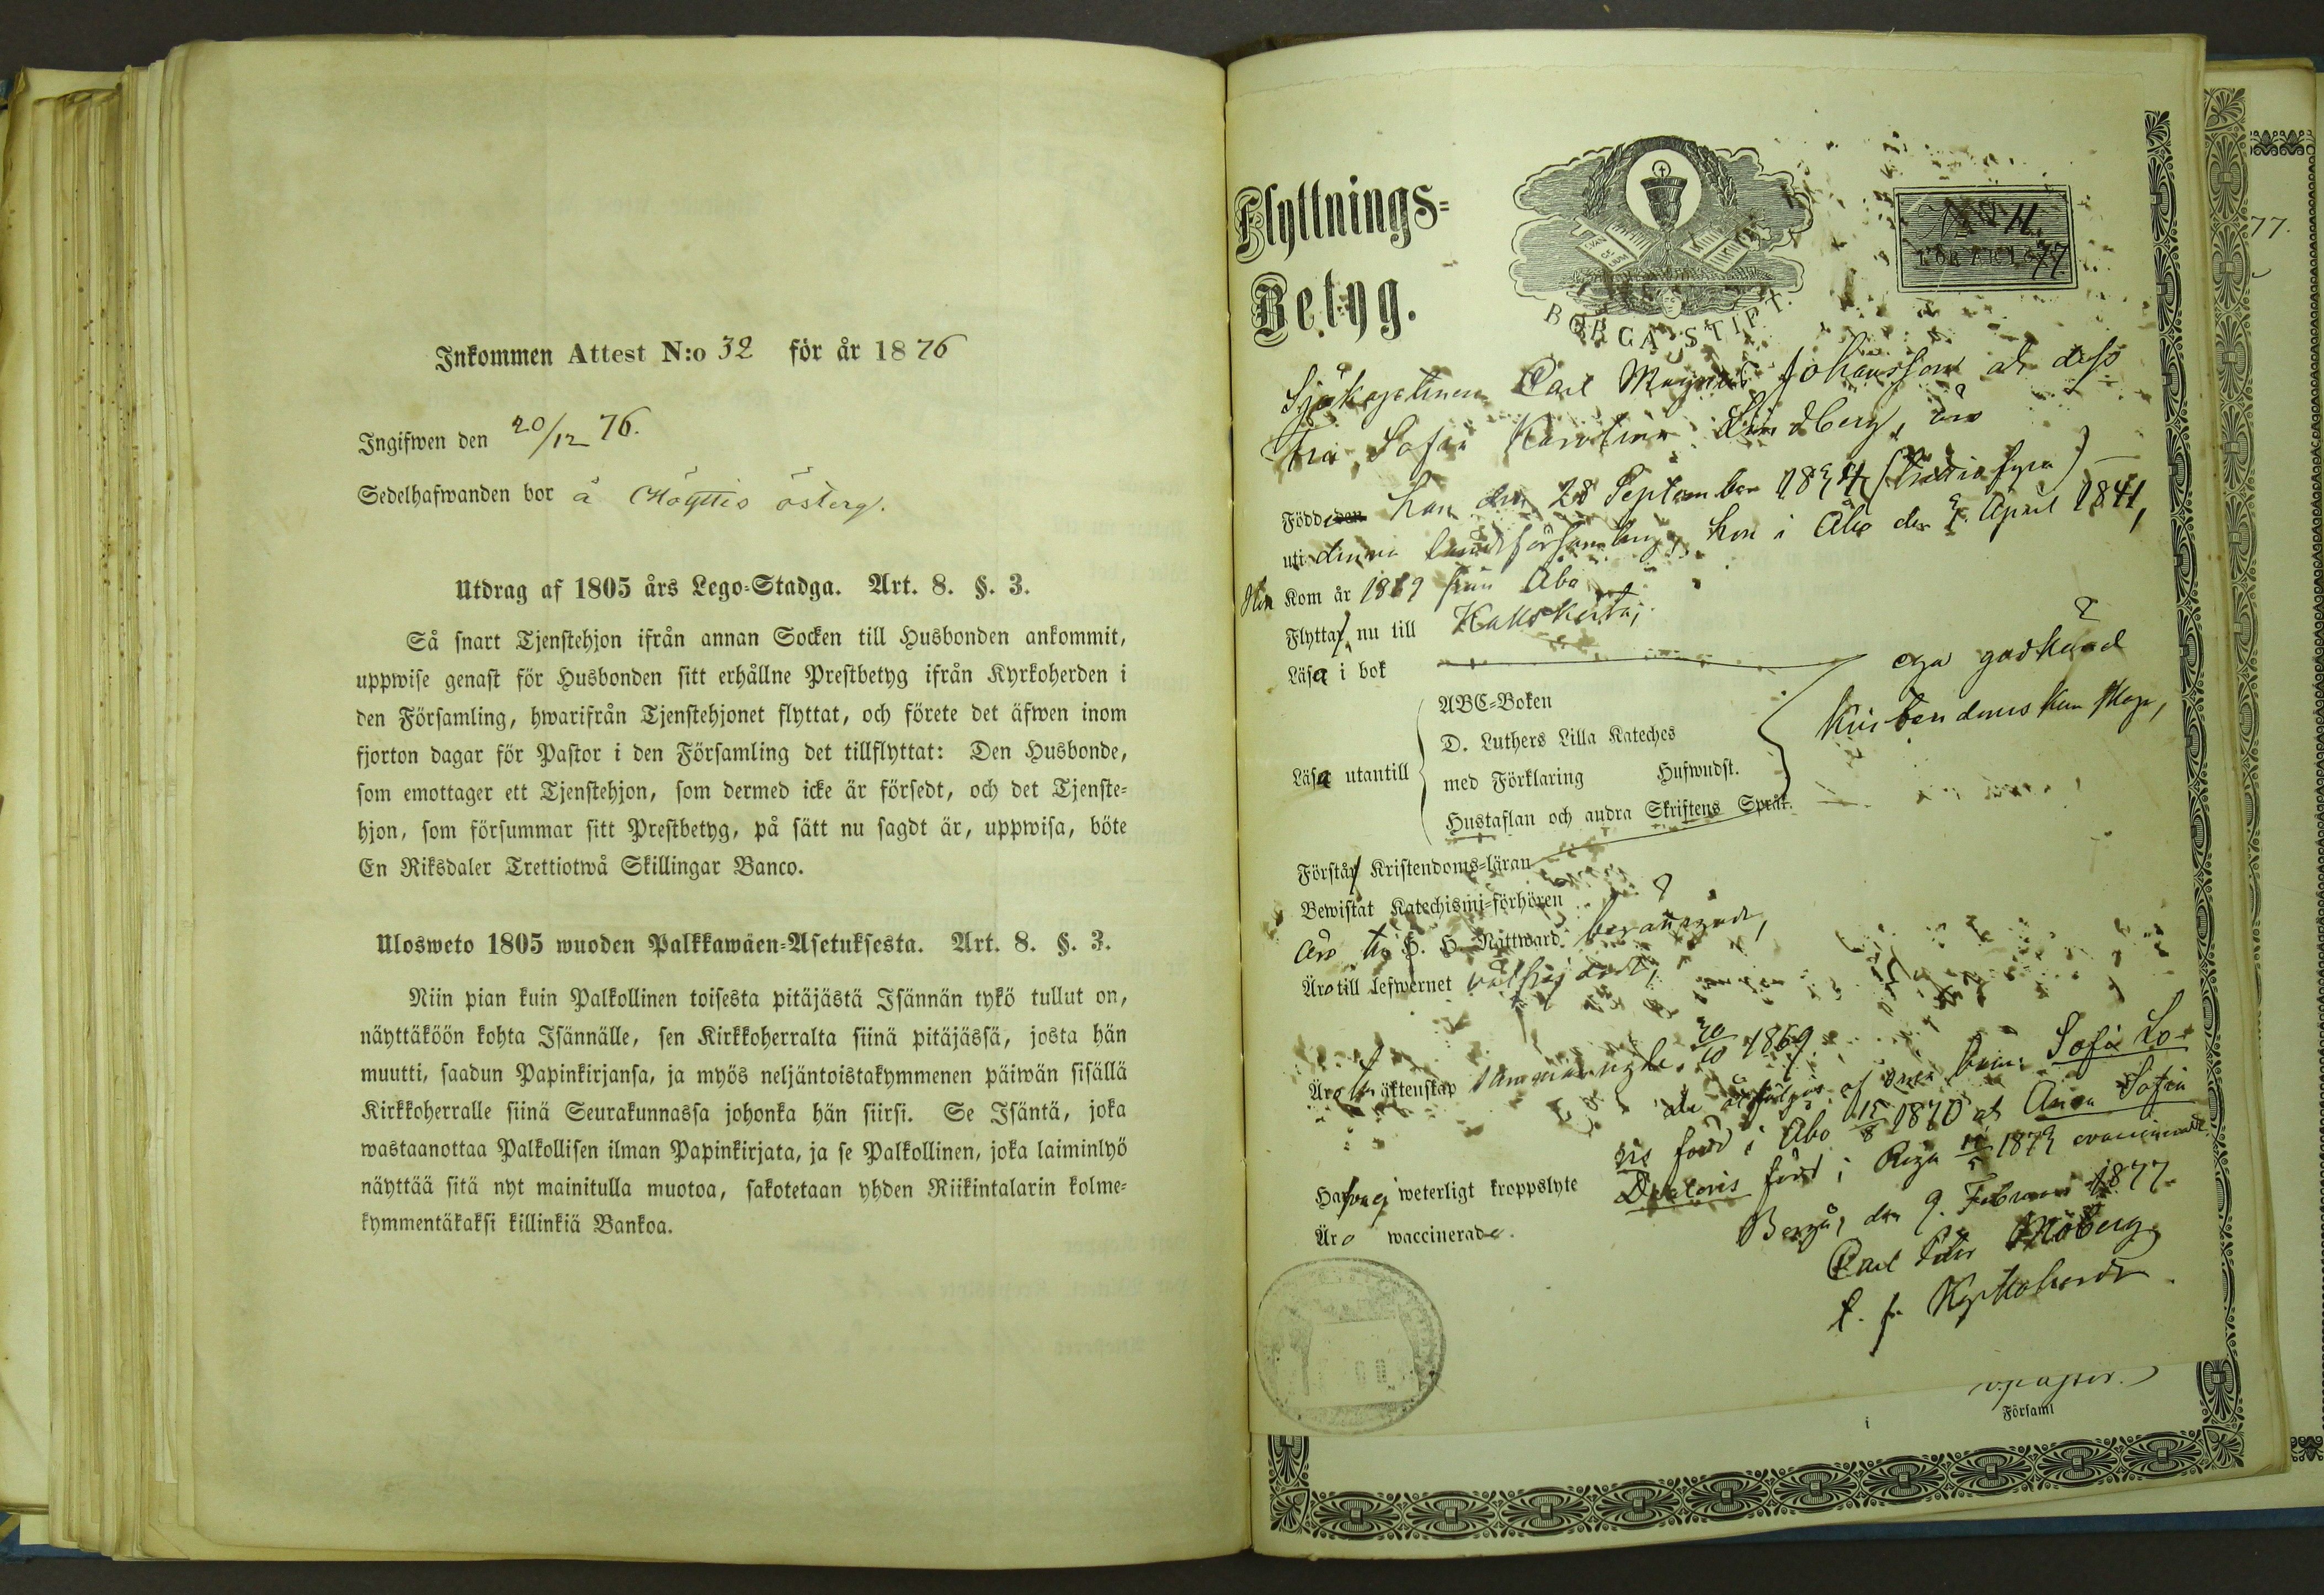 Inkommen Attest N:o 32 för år 1876
Ingifwen den 20/12 76.
Sedelhafwanden bor å österg.
Utdrag af 1805 års Lego-Stadga. Art. 8. §. 3.
Så snart Tjenstehjon ifrån annan Socken till Husbonden ankommit,
uppwise genast för Husbonden sitt erhållne Prestbetyg ifrån Kyrkoherden i
den Församling, hwarifrån Tjenstehjonet flyttat, och förete det äfwen inom
fjorton dagar för Pastor i den Församling det tillflyttat: Den Husbonde,
som emottager ett Tjenstehjon, som dermed icke är försedt, och det Tjenste-
hjon, som försummar sitt Prestbetyg, på sätt nu sagdt är, uppwisa, böte
En Riksdaler Trettiotwå Skillingar Banco.
Ulosweto 1805 wuoden Palkkawäen-Asetuksesta. Art. 8. §. 3.
Niin pian kuin Palkollinen toisesta pitäjästä Isännän tykö tullut on,
näyttäköön kohta Isännälle, sen Kirkkoherralta siinä pitäjässä, josta hän
muutti, saadun Papinkirjansa, ja myös neljäntoistakymmenen päiwän sisällä
Kirkkoherralle siinä Seurakunnassa johonka hän siirsi. Se Isäntä, joka
wastaanottaa Palkollisen ilman Papinkirjata, ja se Palkollinen, joka laiminlyö
näyttää sitä nyt mainitulla muotoa, sakotetaan yhden Riikintalarin kolme-
kymmentäkaksi killinkiä Bankoa.
Flyttnings-
Betyg.
EVAN GE LIUM
BORGA STIFT.
N:o 11.
FÖR ÅR 1877
Sjökaptenen Carl Magnus Johansson och dess
fru Sofia Karolina Lindberg, äro
Född den han den 28 September 1834 (trettiofyra)
uti denna landsförsamling, hon i Åbo den 9 April 1841,
Hon Kom år 1869 från Åbo
Flytta nu till Kakskerta,
Läsa i bok
ega godkänd
Kristendomskunskap,
Läsa utantill
ABC-Boken
D. Luthers Lilla Kateches
med Förklaring Hufwudst.
Hustaflan och andra Skriftens Språk.
Förstå Kristendoms-läran
Bewistat Katechismi-förhören
äro till H. H. Nattward berättigade,
Äro till lefwernet välfrejdade,
Äro i äktenskap sammanvigde 20/10 1869.
de åtföljas af sina barn: Sofia Lo-
vis född i Åbo 15/8 1870 och Anna Sofia
Dolores född i Riga 1873 vaccinerade.
Hafva ej weterligt kroppslyte
Äro waccinerade.
Borgå, den 9. Februari 1877.
Carl Moberg
t. f. Kyrkoherde
v. pastor.
i Församl
77.